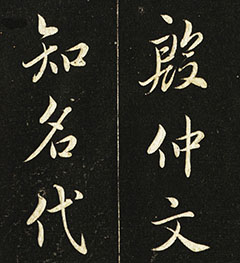 殷仲文
知名代